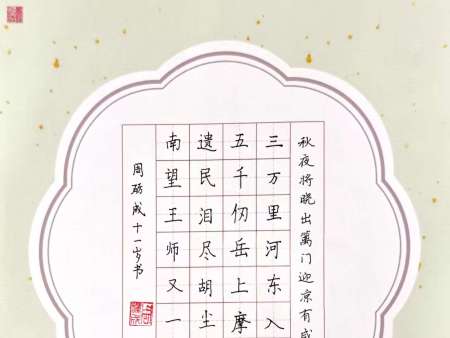 秋夜将晓出篱门迎凉有
三万里河东入
五千仞岳上摩
遗民泪尽胡尘
南望王师又一
周砺成十一岁书